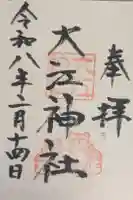 奉拝
大江神社
令和八年一月十四日